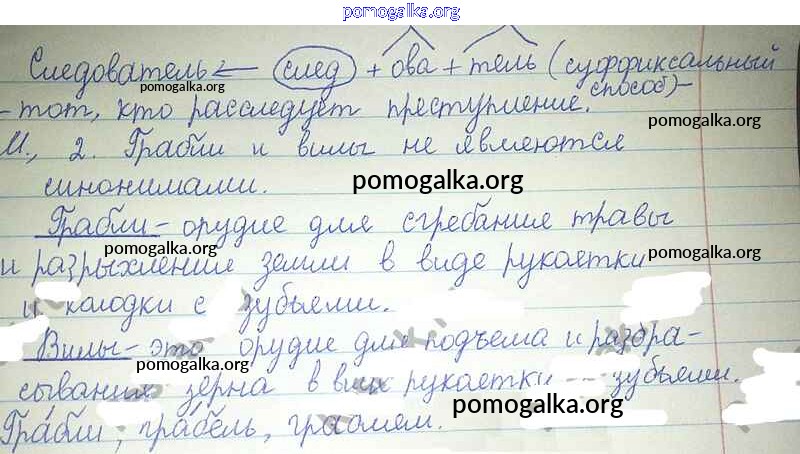 pomogalka.org
Следователь ← след + ова + тель (суффиксальный
способ) -
pomogalka.org
- тот, кто расследует преступление.
pomogalka.org
И., 2. Грабли и вилы не являются
синонимами.
pomogalka.org
Грабли - орудие для сгребание травы
pomogalka.org
pomogalka.org
и разрыхление земли в виде рукоятки
и колодки с зубьями.
Вилы - это орудие для подъема и разбра-
pomogalka.org
сывания зерна в виде рукоятки зубьями.
pomogalka.org
Гра́бли, гра́бель, граблям.